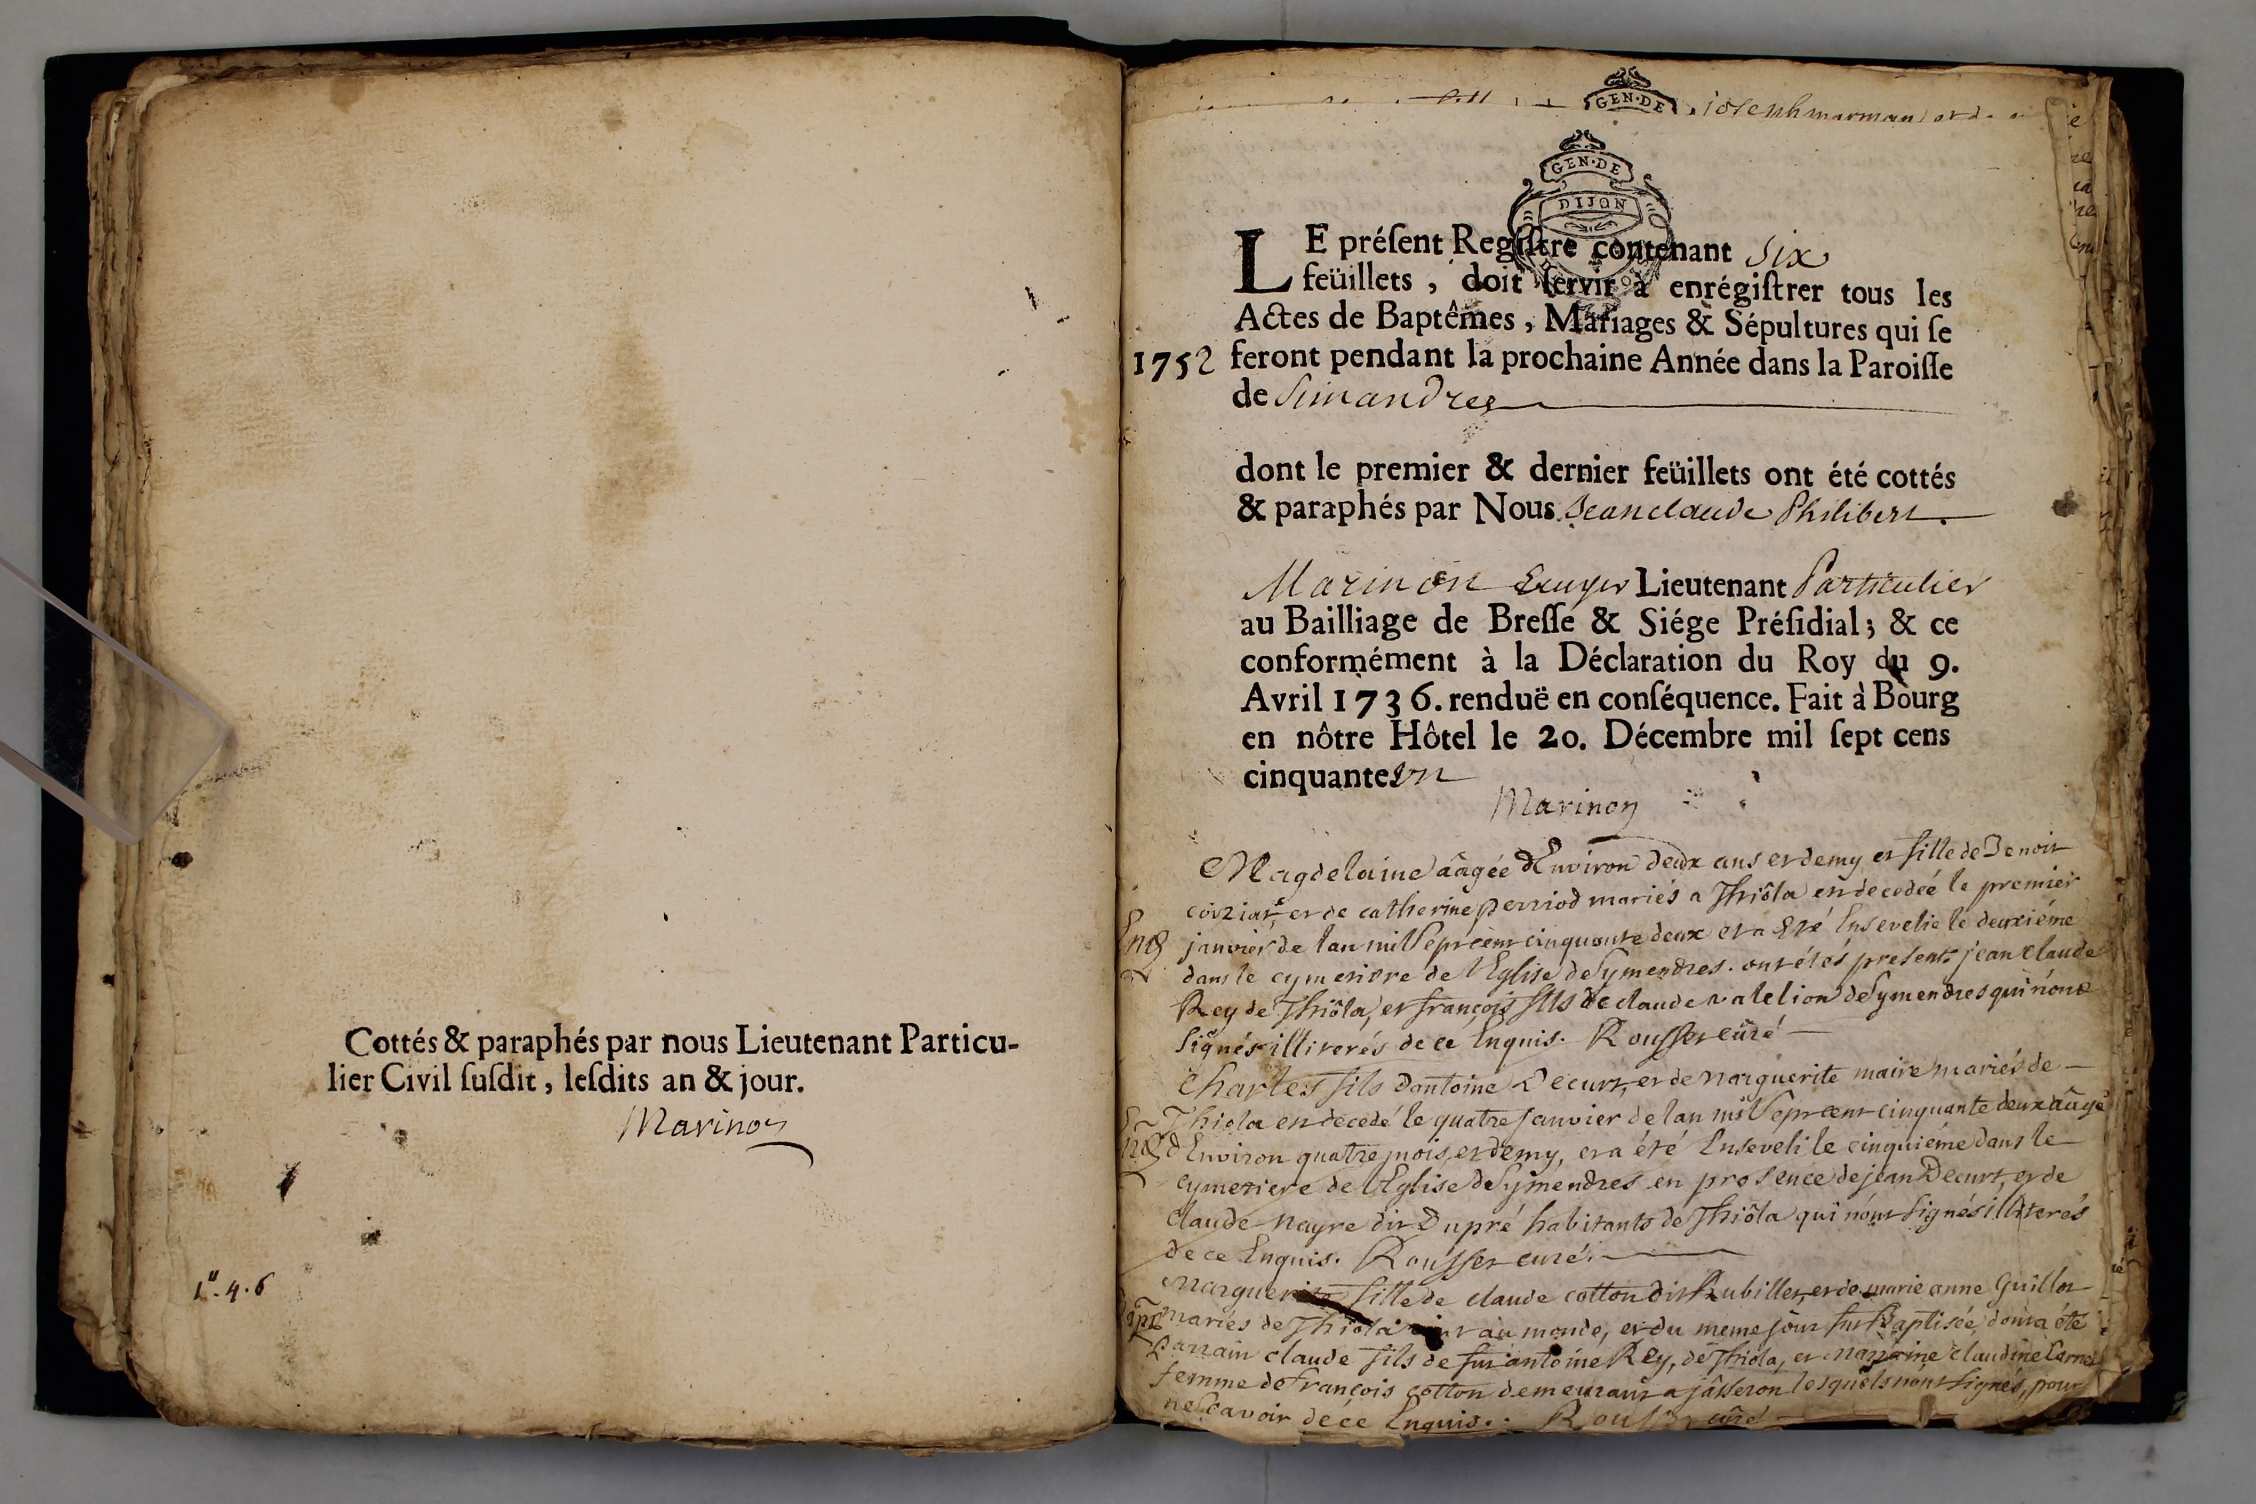 Cottés & paraphés par nous Lieutenant Particu-
lier Civil ſuſdit, leſdits an & jour.
Marinon
1".4.6
GEN·DE
GEN·DE
DIJON
LE préſent Regiſtre contenant Six
feüillets, doit ſervir à enrégiſtrer tous les
Actes de Baptêmes, Mariages & Sépultures qui ſe
1752 feront pendant la prochaine Année dans la Paroiſſe
de Simandres
dont le premier & dernier feüillets ont été cottés
& paraphés par Nous Jean claude Philibert
Marinon Ecuyer Lieutenant Particulier
au Bailliage de Breſſe & Siége Préſidial; & ce
conformément à la Déclaration du Roy du 9.
Avril 1736. renduë en conſéquence. Fait à Bourg
en nôtre Hôtel le 20. Décembre mil ſept cens
cinquante Un
Marinon
Magdelaine aâgée d'Environ deux ans et demy et fille de Benoit
et de catherine perriod mariés a Thiôla en decedée le premier
janvier de lan mil Sept cent cinquante deux et a Eté Ensevelie le deuxiéme
dans le cymetiere de l'Eglise de Symendres. ont étés presents jean claude
Rey de Thiôla, et françois fils de claude de Symendres qui n'ont
signés illiterés de ce Enquis. Rousset curé
Charles fils d'antoine Decurt, et de marguerite maire mariés de
Thiola en decedé le quatre Janvier de lan mil Sept cent cinquante deux aâgé
d'Environ quatre mois, et demy, et a été Enseveli le cinquiéme dans le
cymetiere de l'Eglise de Symendres en presence de jean Decurt, et de
claude mayre dit Dupré habitants de Thiôla qui n'ont signés illiterés
de ce Enquis. Rousset curé
Marguerite fille de claude cotton dit Rubillet, et de marie anne Guillot
mariés de Thiola au monde, et du meme jour fut Baptisée dont a été
Parrain claude fils de fut antoine Rey, de Thiola, et marraine claudine
femme de françois cotton demeurant a jâsseron lesquels n'ont signés, pour
ne scavoir de ce Enquis. Rousset curé